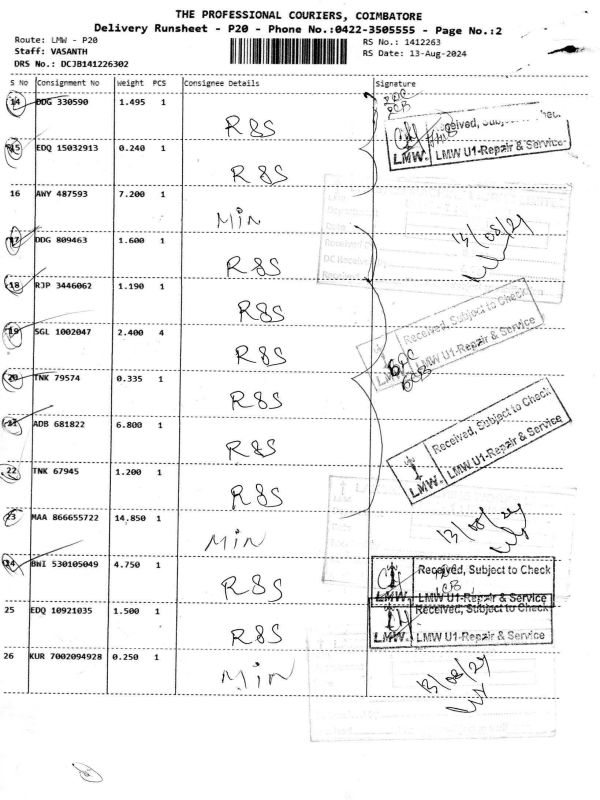 THE PROFESSIONAL COURIERS, COIMBATORE
Delivery Runsheet - P20 - Phone No.:0422-3505555 - Page No.:2
Route: LMW - P20
RS No.: 1412263
Staff: VASANTH
RS Date: 13-Aug-2024
DRS No.: DCJB141226302
S No Consignment No Weight PCS Consignee Details Signature
14 DDG 330590 1.495 1 R&S
15 EDQ 15032913 0.240 1 R&S
Received, Subject to Check
LMW. LMW U1-Repair & Service
16 AWY 487593 7.200 1 Min
13/08/24
17 DDG 809463 1.600 1 R&S
18 RJP 3446062 1.190 1 R&S
19 SGL 1002047 2.400 4 R&S
Received, Subject to Check
LMW U1-Repair & Service
20 TNK 79574 0.335 1 R&S
21 ADB 681822 6.800 1 R&S
Received, Subject to Check
LMW. LMW U1-Repair & Service
22 TNK 67945 1.200 1 R&S
23 MAA 866655722 14.850 1 Min
13/08/24
24 BWI 530105049 4.750 1 R&S
Received, Subject to Check
LMW. LMW U1-Repair & Service
25 EDQ 10921035 1.500 1 R&S
Received, Subject to Check
LMW. LMW U1-Repair & Service
26 KUR 7002094928 0.250 1 Min
13/08/24